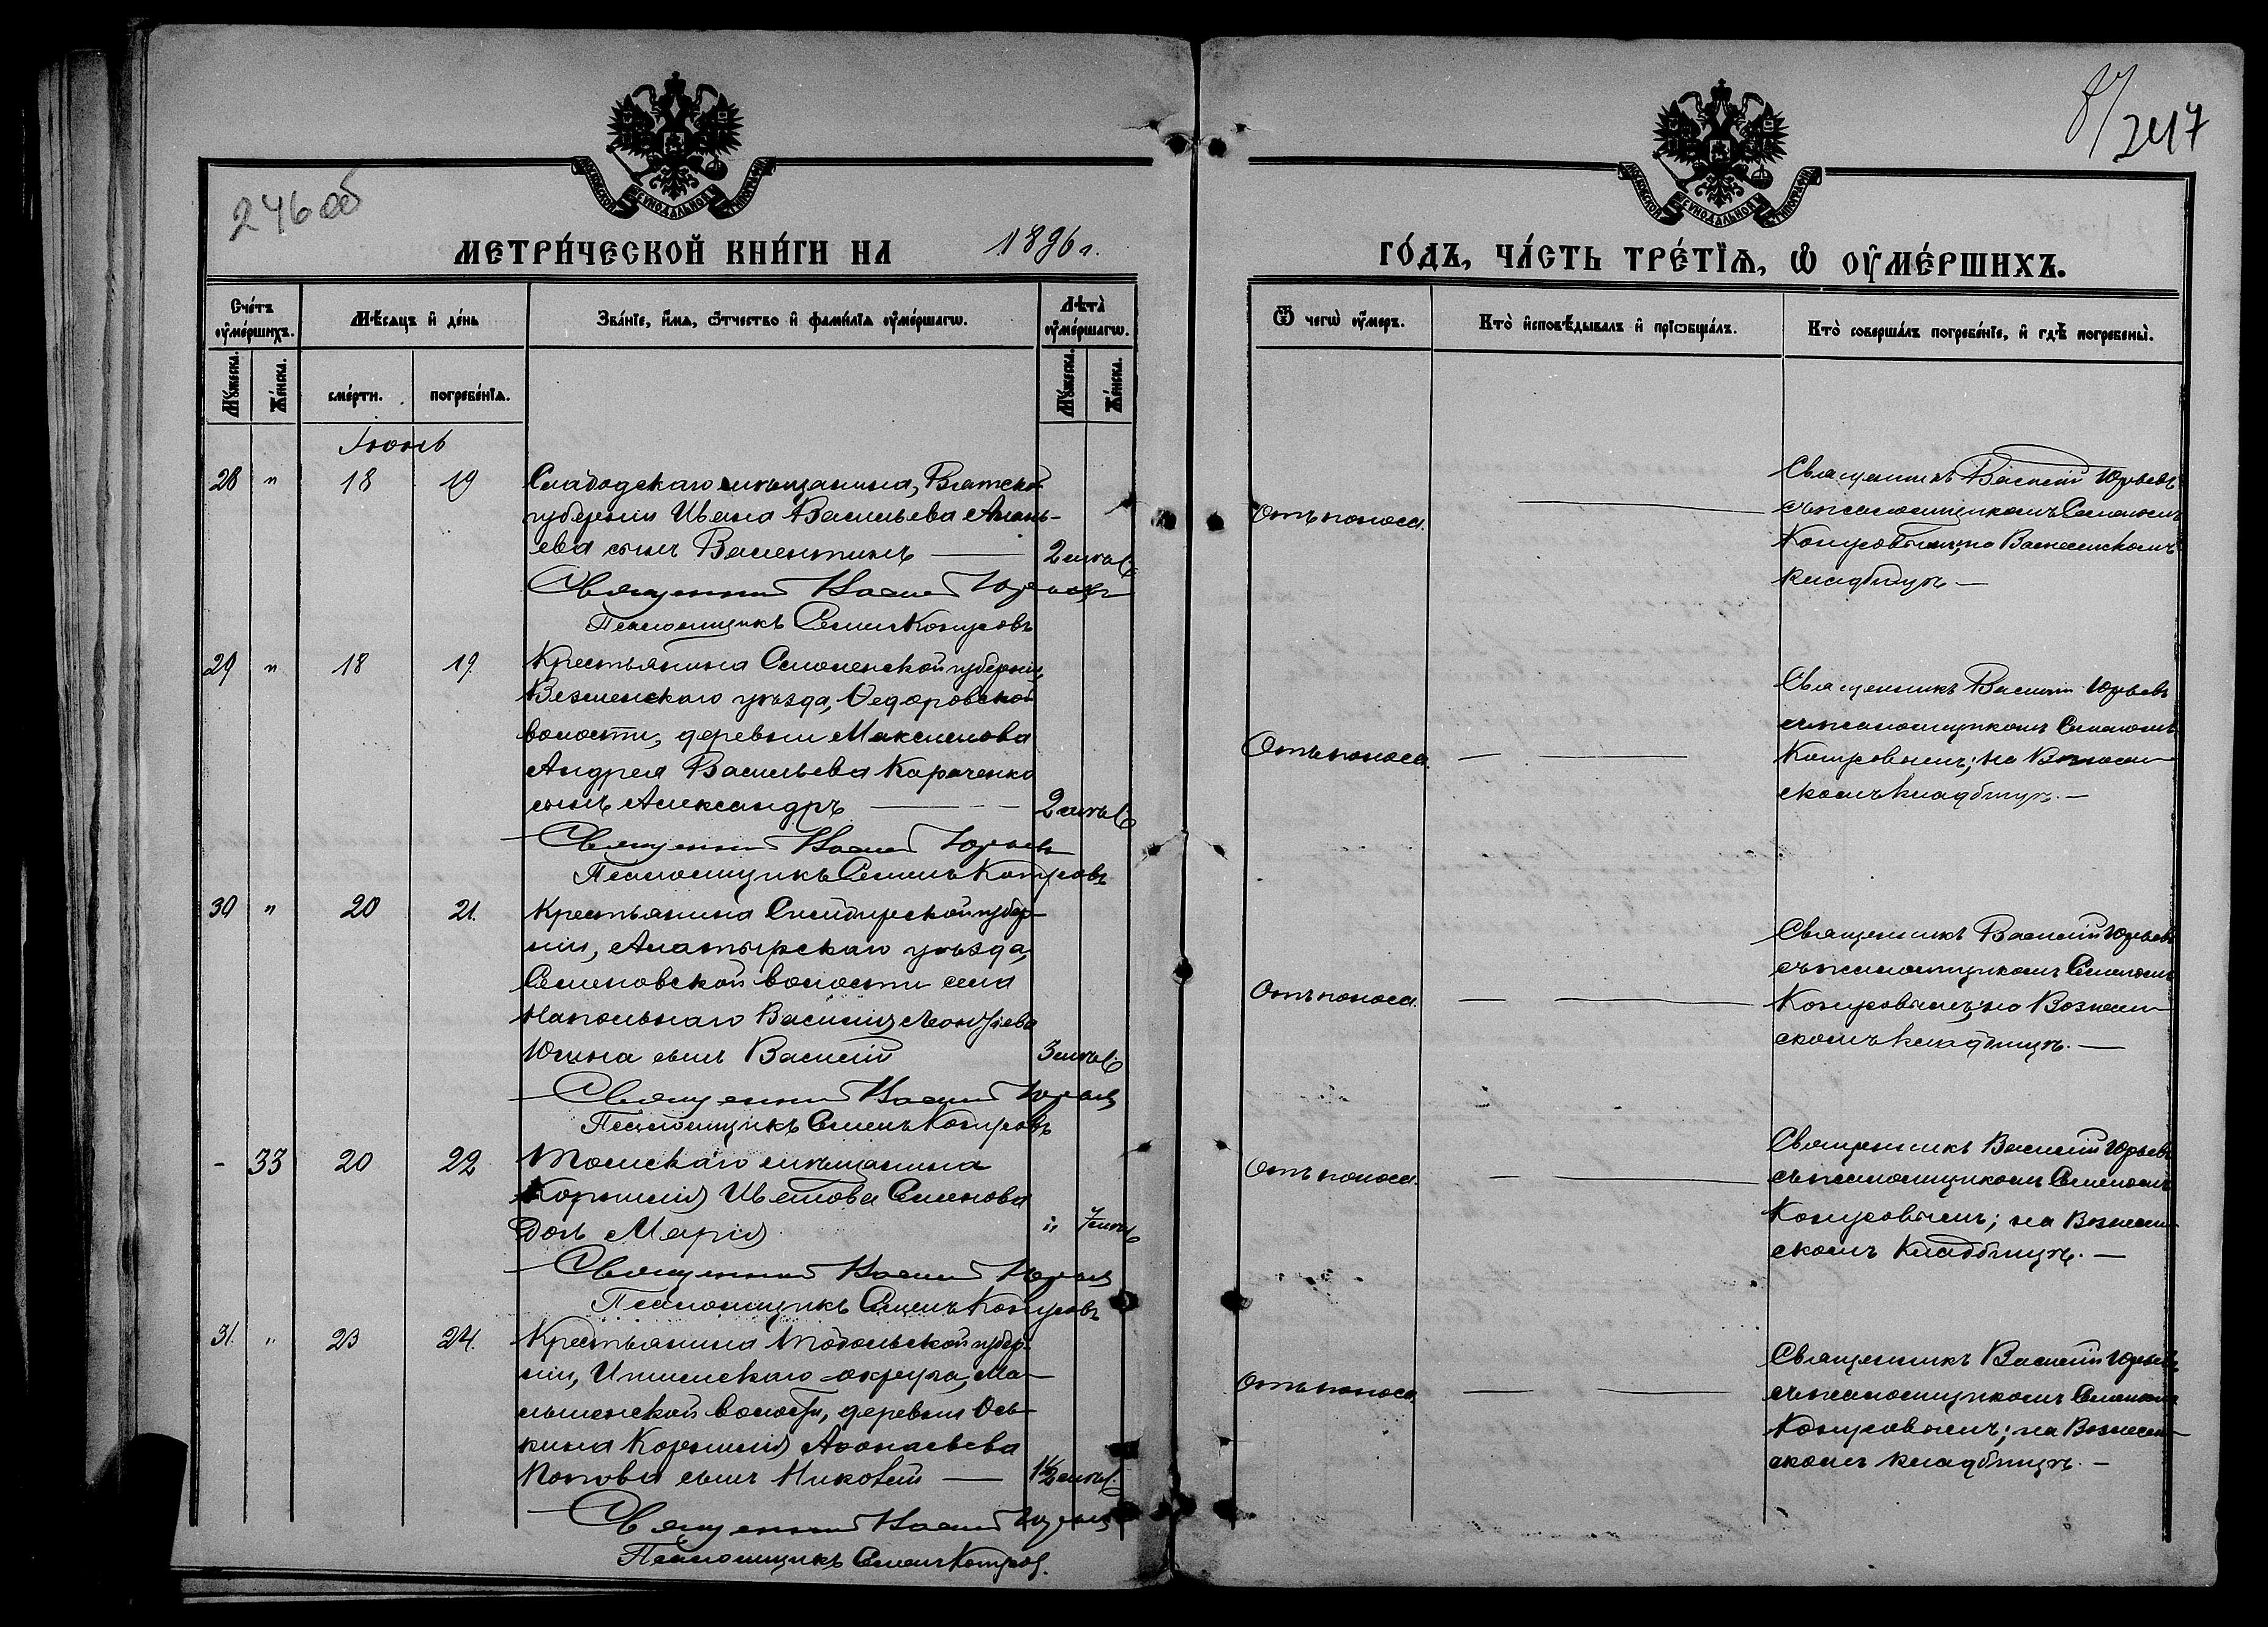 246 об
8/247
МОСКОВСКОЙ СѴНОДАЛЬНОЙ ТИПОГРАФІИ
МОСКОВСКОЙ СѴНОДАЛЬНОЙ ТИПОГРАФІИ
МЕТРИ́ЧЕСКОЙ КНИ́ГИ НА 1896 г.
ГО́ДЪ, ЧА́СТЬ ТРЕ́ТІѦ, Ѡ ОУ҆МЕ́РШИХЪ.
Сче́тъ оу҆ме́ршихъ.
Мѣ́сѧцъ и҆ де́нь
Зва́нїе, и҆́мѧ, ѻ҆́тчество и҆ фами́лїѧ оу҆ме́ршагѡ.
Лѣ̀та̀ оу҆ме́ршагѡ.
Ѿ чегѡ̀ оу҆́меръ.
Кто̀ и҆сповѣ́дывалъ и҆ прїѡбща́лъ.
Кто̀ соверша́лъ погребе́нїе, и҆ гдѣ̀ погребены̀.
Мꙋ́жеска.
Же́нска.
сме́рти.
погребе́нїѧ.
Мꙋ́жеска.
Же́нска.
Іюнь
28 " 18 19
Слабодскаго мѣщанина, Вятской
губерніи Ивана Васильева Анань-
ева сынъ Валентинъ — 2 мѣс.
Священник Васил Юрьевъ
Псаломщикъ Семенъ Котровъ
Отъ поноса.
Священникъ Василій Юрьевъ
съ псаломщикомъ Семеномъ
Котровымъ; на Вознесенскомъ
кладбищѣ —
29 " 18 19.
Крестьянина Смоленской губерніи,
Вяземскаго уѣзда, Ѳедоровской
волости, деревни Максимова
Андрея Васильева Караченко
сынъ Александръ — 2 мѣс.
Священник Васил Юрьевъ
Псаломщикъ Семенъ Котровъ
Отъ поноса.
Священникъ Василій Юрьевъ
съ псаломщикомъ Семеномъ
Котровымъ; на Вознесен-
скомъ кладбищѣ. —
30 " 20 21.
Крестьянина Симбирской губер-
ніи, Алатырскаго уѣзда,
Семеновской волости села
Напольнаго Василія Леонтіева
Югина сынъ Василій 3 мѣс.
Священник Васил Юрьевъ
Псаломщикъ Семенъ Котровъ
Отъ поноса.
Священникъ Василій Юрьевъ
съ псаломщикомъ Семеномъ
Котровымъ; на Вознесен-
скомъ кладбищѣ. —
- 33 20 22
Томскаго мѣщанина
Корнилія Семенова
Дочь Марія " 7 мѣс.
Священник Васил Юрьевъ
Псаломщикъ Семенъ Котровъ
Отъ поноса.
Священникъ Василій Юрьевъ
съ псаломщикомъ Семеномъ
Котровымъ; на Вознесен-
скомъ кладбищѣ. —
31. " 23 24.
Крестьянина Тобольской губер-
ніи, Ишимскаго округа, Ма-
лышенской волости, деревни Ось-
кина Корнилія Аѳонасьева
Попова сынъ Николай — 1½ мѣс.
Священник Васил Юрьевъ
Псаломщикъ Семенъ Котровъ.
Отъ поноса.
Священникъ Василій Юрьевъ
съ псаломщикомъ Семеномъ
Котровымъ; на Вознесен-
скомъ кладбищѣ. —